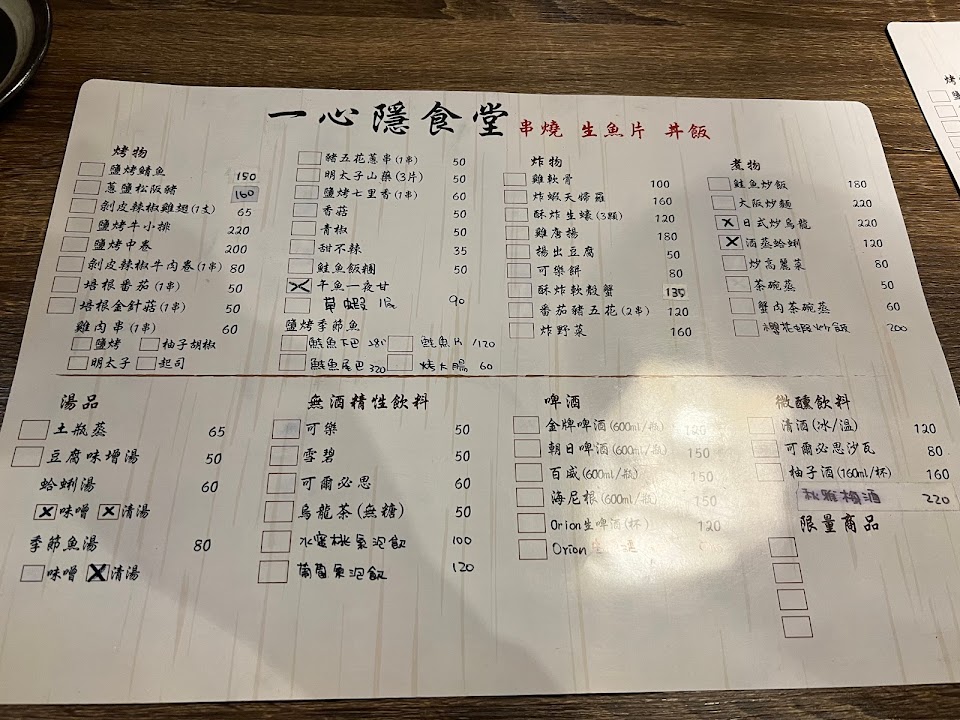 一心隱食堂 串燒 生魚片 丼飯
烤物
鹽烤鯖魚 150
蔥鹽松阪豬 160
剝皮辣椒雞翅(1支) 65
鹽烤牛小排 220
鹽烤中卷 200
剝皮辣椒牛肉卷(1串) 80
培根番茄(1串) 50
培根金針菇(1串) 50
雞肉串(1串) 60
鹽烤 柚子胡椒
明太子 起司
豬五花蔥串(1串) 50
明太子山藥(3片) 50
鹽烤七里香(1串) 60
香菇 50
青椒 50
甜不辣 35
鮭魚飯糰 50
午魚一夜甘
草蝦 90
鹽烤季節魚
鮭魚片 /120
320 烤大腸 60
炸物
雞軟骨 100
炸蝦天婦羅 160
酥炸生蠔(3顆) 120
雞唐揚 180
揚出豆腐 50
可樂餅 80
酥炸軟殼蟹 135
番茄豬五花(2串) 120
炸野菜 160
煮物
鮭魚炒飯 180
大阪炒麵 220
日式炒烏龍 220
酒蒸蛤蜊 120
炒高麗菜 80
茶碗蒸 50
蟹肉茶碗蒸 60
櫻花蝦炒飯 200
湯品
土瓶蒸 65
豆腐味增湯 50
蛤蜊湯 60
味噌 清湯
季節魚湯 80
味噌 清湯
無酒精性飲料
可樂 50
雪碧 50
可爾必思 60
烏龍茶(無糖) 50
水蜜桃氣泡飲 100
葡萄氣泡飲 120
啤酒
金牌啤酒(600ml/瓶) 120
朝日啤酒(600ml/瓶) 150
百威(600ml/瓶) 150
海尼根(600ml/瓶) 150
Orion生啤酒(杯) 120
Orion生
微醺飲料
清酒(冰/溫) 120
可爾必思沙瓦 80
柚子酒(160ml/杯) 160
梅酒 220
限量商品